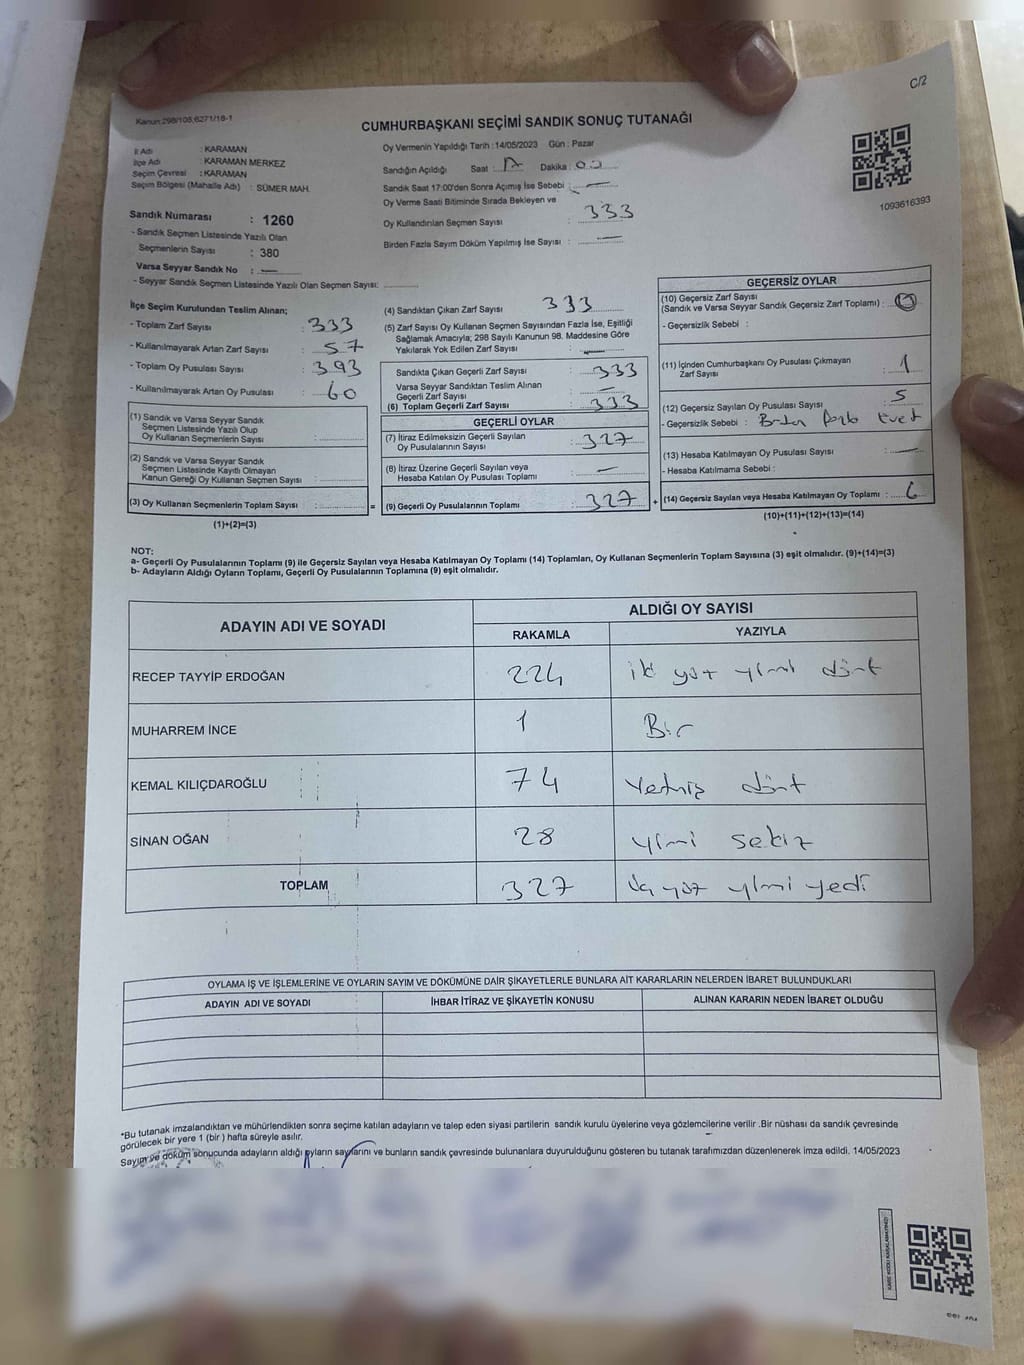 C/2
Kanun:298/105;6271/18-1
CUMHURBAŞKANI SEÇİMİ SANDIK SONUÇ TUTANAĞI
İl Adı : KARAMAN
İlçe Adı : KARAMAN MERKEZ
Seçim Çevresi : KARAMAN
Seçim Bölgesi (Mahalle Adı) : SÜMER MAH.
Sandık Numarası : 1260
- Sandık Seçmen Listesinde Yazılı Olan
Seçmenlerin Sayısı : 380
Varsa Seyyar Sandık No : —
- Seyyar Sandık Seçmen Listesinde Yazılı Olan Seçmen Sayısı:
Oy Vermenin Yapıldığı Tarih :14/05/2023 Gün : Pazar
Sandığın Açıldığı Saat : Dakika : 00
Sandık Saat 17:00'den Sonra Açımış İse Sebebi : —
Oy Verme Saati Bitiminde Sırada Bekleyen ve
Oy Kullandırılan Seçmen Sayısı : 333
Birden Fazla Sayım Döküm Yapılmış İse Sayısı : —
1093616393
İlçe Seçim Kurulundan Teslim Alınan;
- Toplam Zarf Sayısı : 333
- Kullanılmayarak Artan Zarf Sayısı : 57
- Toplam Oy Pusulası Sayısı : 393
- Kullanılmayarak Artan Oy Pusulası : 60
(1) Sandık ve Varsa Seyyar Sandık
Seçmen Listesinde Yazılı Olup
Oy Kullanan Seçmenlerin Sayısı :
(2) Sandık ve Varsa Seyyar Sandık
Seçmen Listesinde Kayıtlı Olmayan
Kanun Gereği Oy Kullanan Seçmen Sayısı :
(3) Oy Kullanan Seçmenlerin Toplam Sayısı : =
(1)+(2)=(3)
(4) Sandıktan Çıkan Zarf Sayısı : 333
(5) Zarf Sayısı Oy Kullanan Seçmen Sayısından Fazla İse, Eşitliği
Sağlamak Amacıyla; 298 Sayılı Kanunun 98. Maddesine Göre
Yakılarak Yok Edilen Zarf Sayısı : —
Sandıkta Çıkan Geçerli Zarf Sayısı : 333
Varsa Seyyar Sandıktan Teslim Alınan
Geçerli Zarf Sayısı : —
(6) Toplam Geçerli Zarf Sayısı : 333
GEÇERLİ OYLAR
(7) İtiraz Edilmeksizin Geçerli Sayılan
Oy Pusulalarının Sayısı : 327
(8) İtiraz Üzerine Geçerli Sayılan veya
Hesaba Katılan Oy Pusulası Toplamı : —
(9) Geçerli Oy Pusulalarının Toplamı : 327 +
GEÇERSİZ OYLAR
(10) Geçersiz Zarf Sayısı
(Sandık ve Varsa Seyyar Sandık Geçersiz Zarf Toplamı) : 0
- Geçersizlik Sebebi :
(11) İçinden Cumhurbaşkanı Oy Pusulası Çıkmayan
Zarf Sayısı : 1
(12) Geçersiz Sayılan Oy Pusulası Sayısı : 5
- Geçersizlik Sebebi : Evet
(13) Hesaba Katılmayan Oy Pusulası Sayısı : —
- Hesaba Katılmama Sebebi :
(14) Geçersiz Sayılan veya Hesaba Katılmayan Oy Toplamı : 6
(10)+(11)+(12)+(13)=(14)
NOT:
a- Geçerli Oy Pusulalarının Toplamı (9) ile Geçersiz Sayılan veya Hesaba Katılmayan Oy Toplamı (14) Toplamları, Oy Kullanan Seçmenlerin Toplam Sayısına (3) eşit olmalıdır. (9)+(14)=(3)
b- Adayların Aldığı Oyların Toplamı, Geçerli Oy Pusulalarının Toplamına (9) eşit olmalıdır.
ADAYIN ADI VE SOYADI ALDIĞI OY SAYISI
RAKAMLA YAZIYLA
RECEP TAYYİP ERDOĞAN 224 iki yüz yirmi dört
MUHARREM İNCE 1 Bir
KEMAL KILIÇDAROĞLU 74 Yetmiş dört
SİNAN OĞAN 28 yirmi sekiz
TOPLAM 327 üç yüz yirmi yedi
OYLAMA İŞ VE İŞLEMLERİNE VE OYLARIN SAYIM VE DÖKÜMÜNE DAİR ŞİKAYETLERLE BUNLARA AİT KARARLARIN NELERDEN İBARET BULUNDUKLARI
ADAYIN ADI VE SOYADI İHBAR İTİRAZ VE ŞİKAYETİN KONUSU ALINAN KARARIN NEDEN İBARET OLDUĞU
*Bu tutanak imzalandıktan ve mühürlendikten sonra seçime katılan adayların ve talep eden siyasi partilerin sandık kurulu üyelerine veya gözlemcilerine verilir .Bir nüshası da sandık çevresinde
görülecek bir yere 1 (bir ) hafta süreyle asılır.
Sayım ve döküm sonucunda adayların aldığı oyların sayılarını ve bunların sandık çevresinde bulunanlara duyurulduğunu gösteren bu tutanak tarafımızdan düzenlenerek imza edildi. 14/05/2023